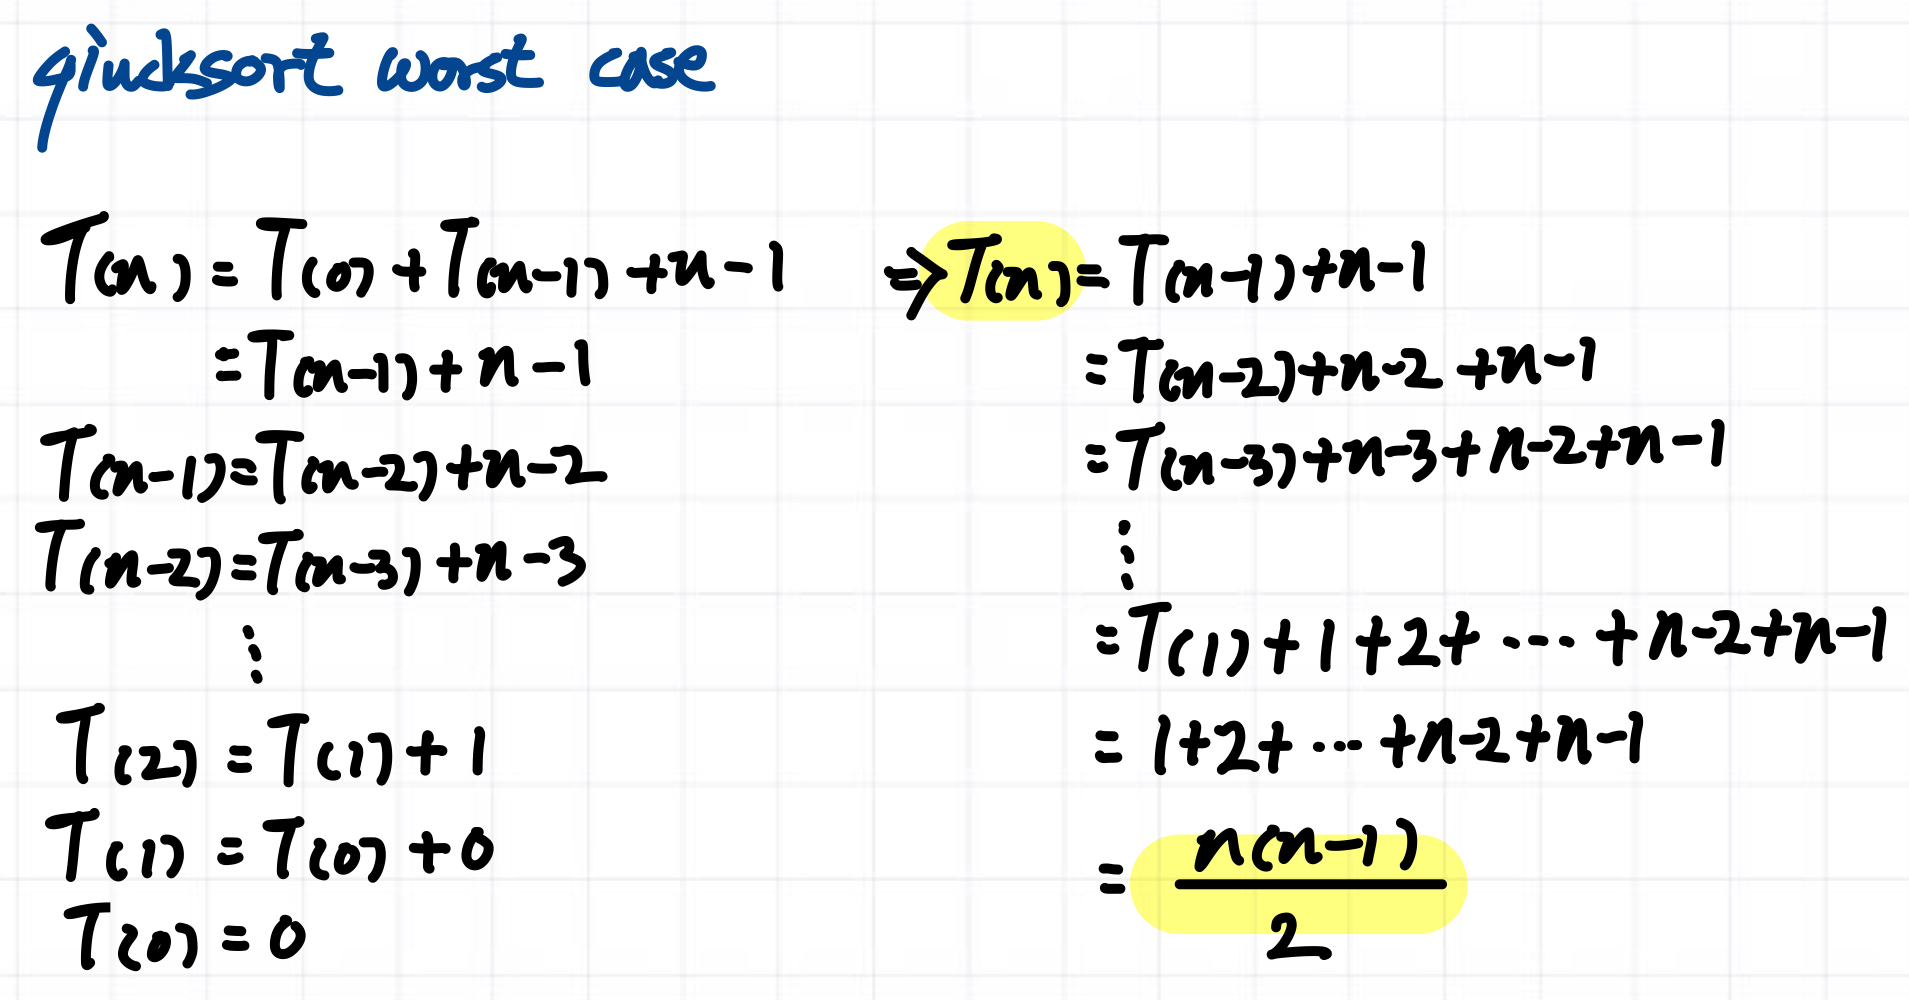 qiucksort worst case
T(n) = T(0) + T(n-1) + n - 1
= T(n-1) + n - 1
T(n-1) = T(n-2) + n - 2
T(n-2) = T(n-3) + n - 3
⋮
T(2) = T(1) + 1
T(1) = T(0) + 0
T(0) = 0
⇒ T(n) = T(n-1) + n - 1
= T(n-2) + n - 2 + n - 1
= T(n-3) + n - 3 + n - 2 + n - 1
⋮
= T(1) + 1 + 2 + ⋯ + n - 2 + n - 1
= 1 + 2 + ⋯ + n - 2 + n - 1
= n(n-1)
2